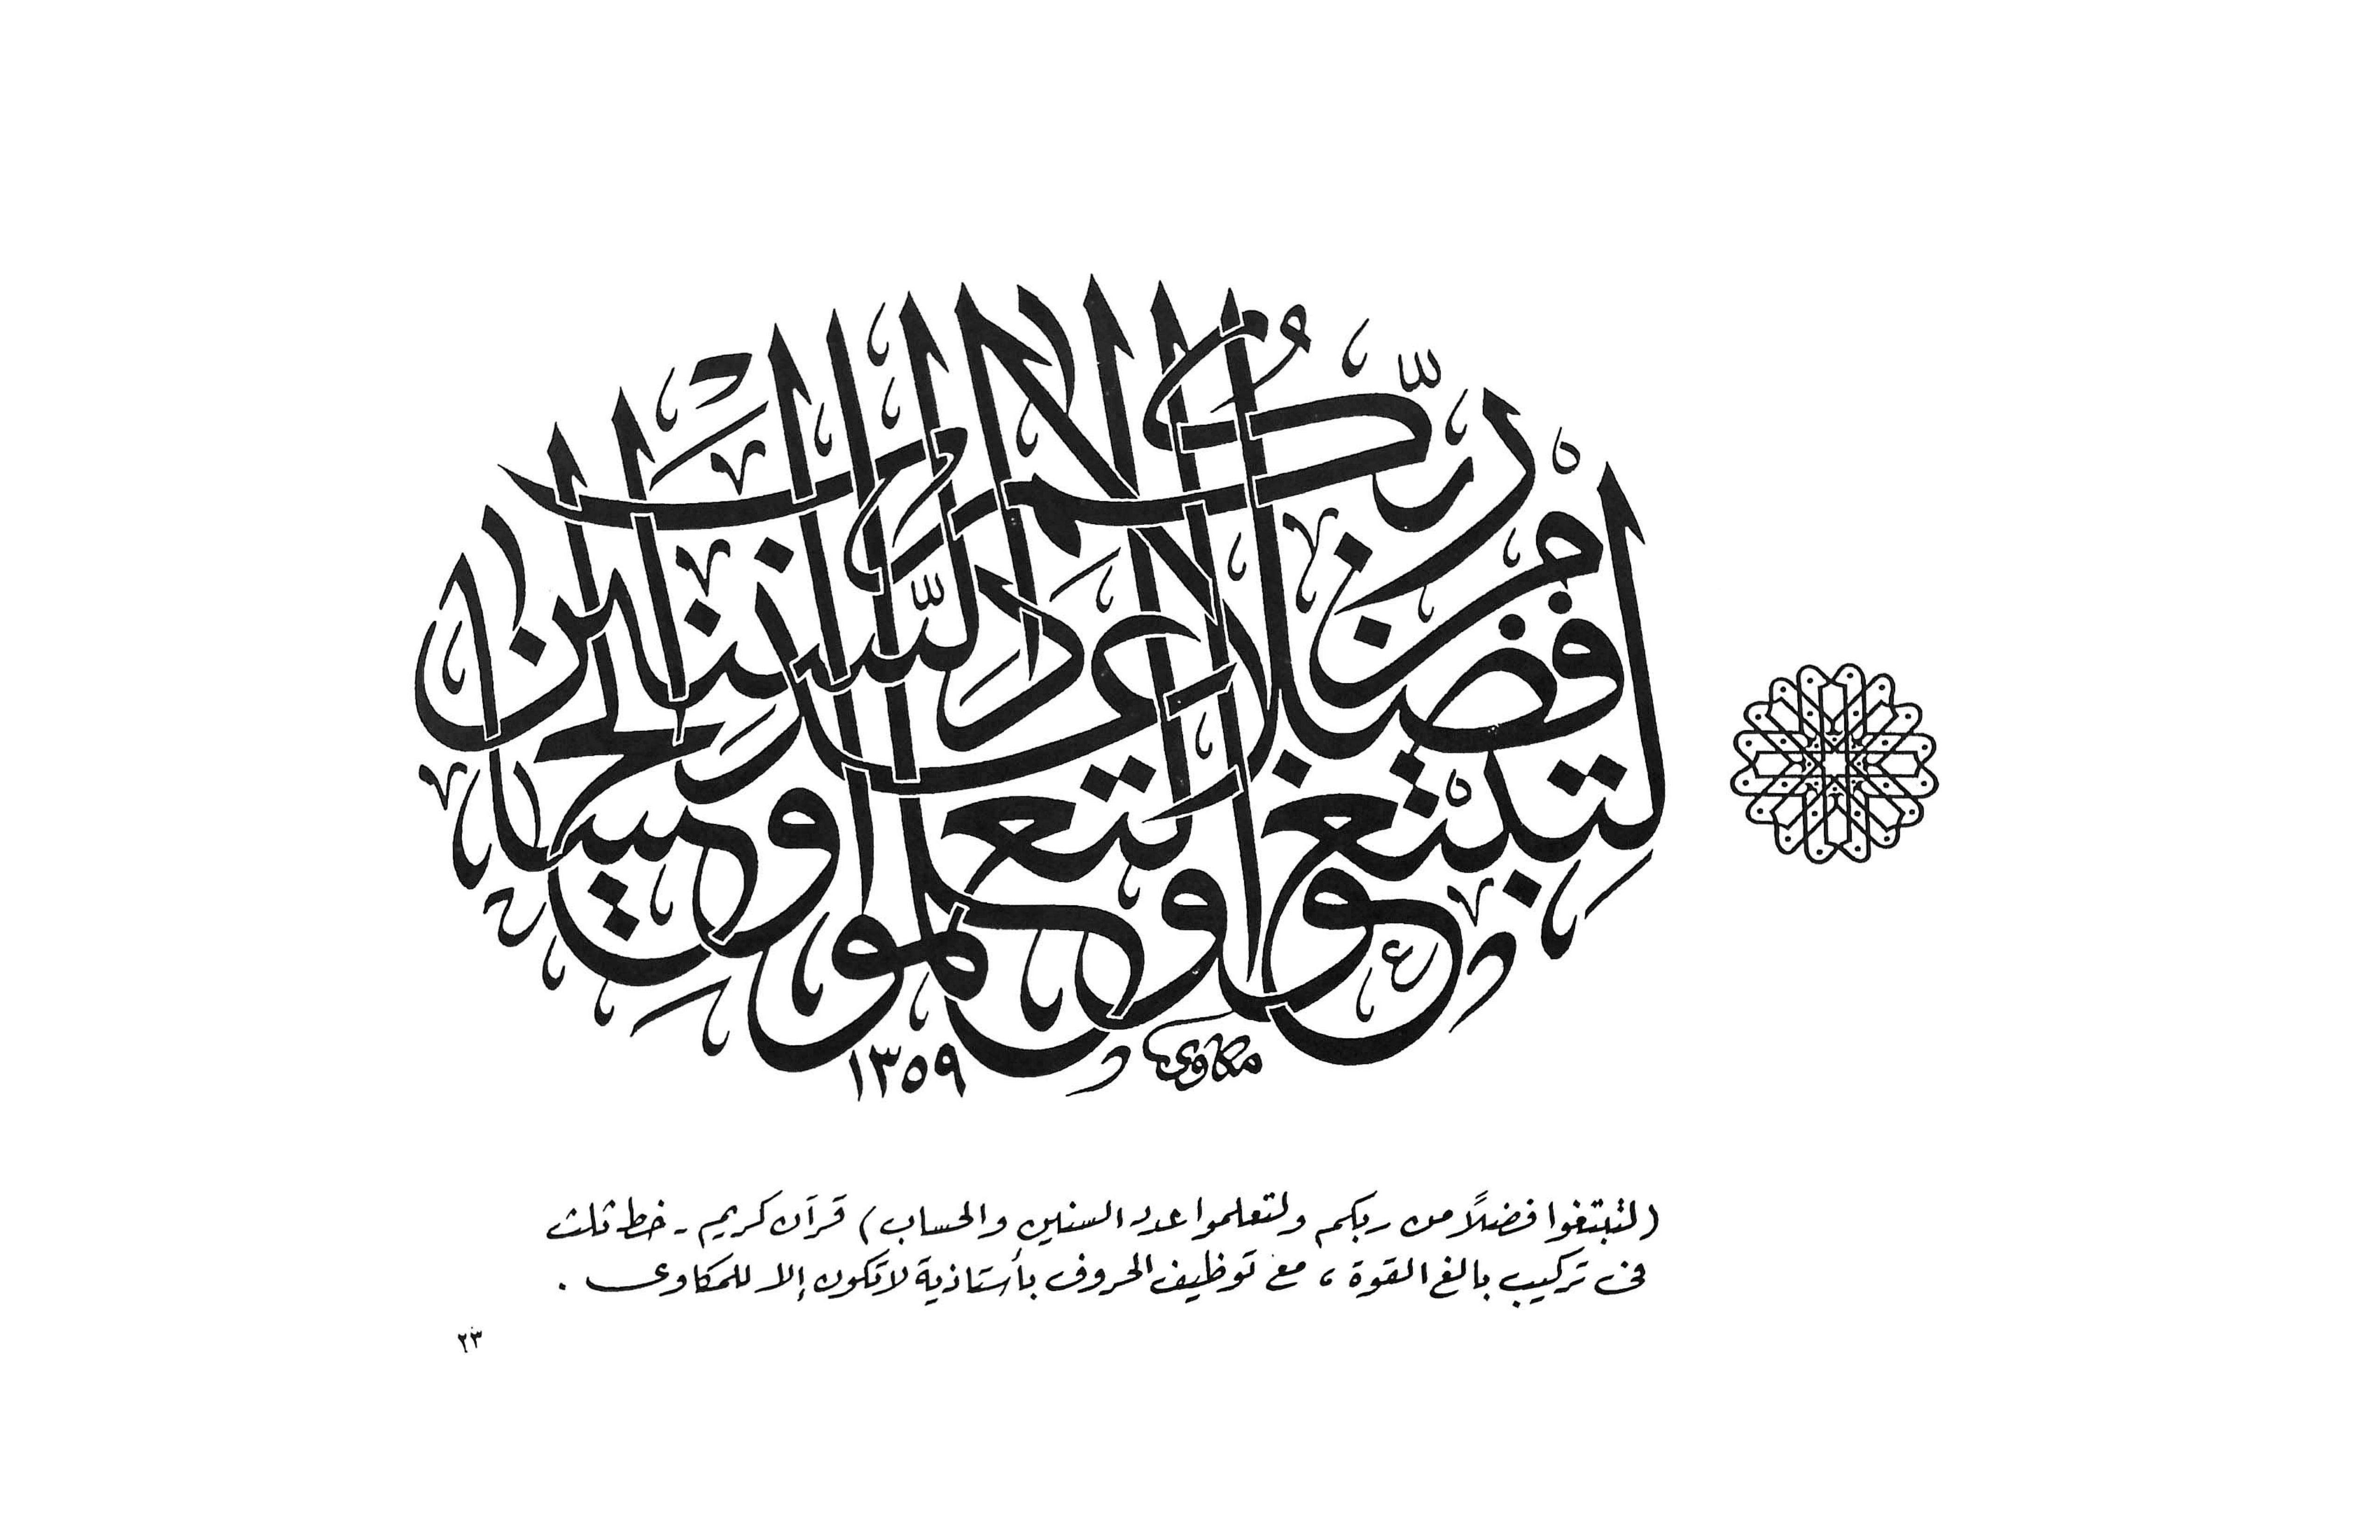 لتبتغوا فضلا من ربكم ولتعلموا عدد السنين والحساب
مكاوى
١٣٥٩
(لتبتغوا فضلاً من ربكم ولتعلموا عدد السنين والحساب) قرآن كريم - خط ثلث
فى تركيب بالغ القوة ، مع توظيف الحروف بأستاذية لا تكون إلا للمكاوى .
٢٣